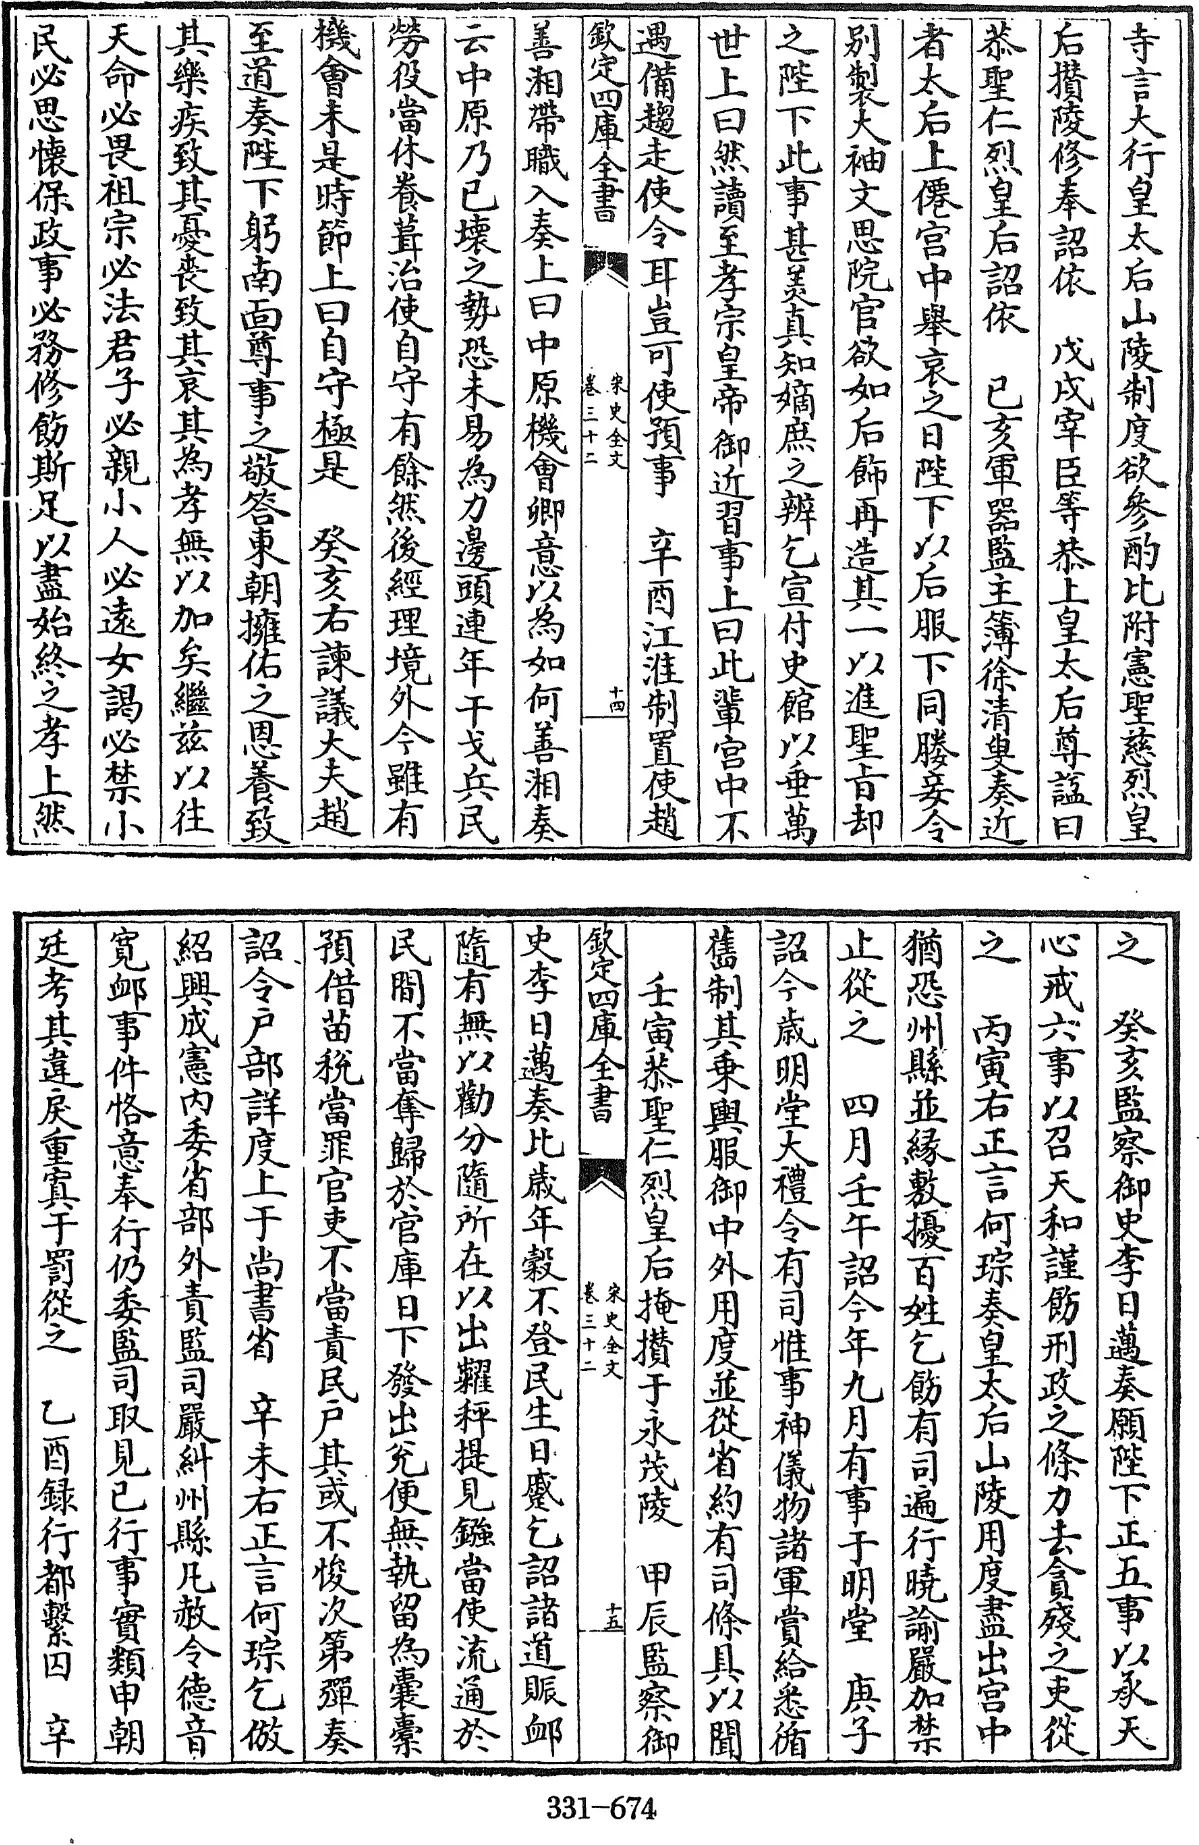 寺言大行皇太后山陵制度欲參酌比附憲聖慈烈皇
后攢陵修奉詔依　戊戌宰臣等恭上皇太后尊諡曰
恭聖仁烈皇后詔依　已亥軍器監主簿徐清叟奏近
者太后上僊宫中舉哀之日陛下以后服下同媵妾令
别製大袖文思院官欲如后飾再造其一以進聖旨却
之陛下此事甚美真知嫡庶之辨乞宣付史館以垂萬
世上曰然讀至孝宗皇帝御近習事上曰此輩宫中不
遇備趨走使令耳豈可使預事　辛酉江淮制置使趙
欽定四庫全書
宋史全文
卷三十二
十四
善湘帶職入奏上曰中原機會卿意以為如何善湘奏
云中原乃已壞之勢恐未易為力邊頭連年干戈兵民
勞役當休養葺治使自守有餘然後經理境外今雖有
機會未是時節上曰自守極是　癸亥右諫議大夫趙
至道奏陛下躬南面尊事之敬答東朝擁佑之恩養致
其樂疾致其憂喪致其哀其為孝無以加矣繼兹以往
天命必畏祖宗必法君子必親小人必遠女謁必禁小
民必思懷保政事必務修飭斯足以盡始終之孝上然
之　癸亥監察御史李日邁奏願陛下正五事以承天
心戒六事以召天和謹飭刑政之條力去貪殘之吏從
之　丙寅右正言何琮奏皇太后山陵用度盡出宫中
猶恐州縣並緣敷擾百姓乞飭有司遍行曉諭嚴加禁
止從之　四月壬午詔今年九月有事于明堂　庚子
詔今歲明堂大禮令有司惟事神儀物諸軍賞給悉循
舊制其乘輿服御中外用度並從省約有司條具以聞
壬寅恭聖仁烈皇后掩攢于永茂陵　甲辰監察御
欽定四庫全書
宋史全文
卷三十二
十五
史李日邁奏比歲年穀不登民生日蹙乞詔諸道賑卹
隨有無以勸分隨所在以出糶秤提見鏹當使流通於
民間不當奪歸於官庫日下發出兊便無執留為囊橐
預借苗稅當罪官吏不當責民户其或不悛次第彈奏
詔令户部詳度上于尚書省　辛未右正言何琮乞倣
紹興成憲内委省部外責監司嚴糾州縣凡赦令德音
寛卹事件恪意奉行仍委監司取見已行事實類申朝
廷考其違戾重寘于罰從之　乙酉録行都繫囚　辛
331-674